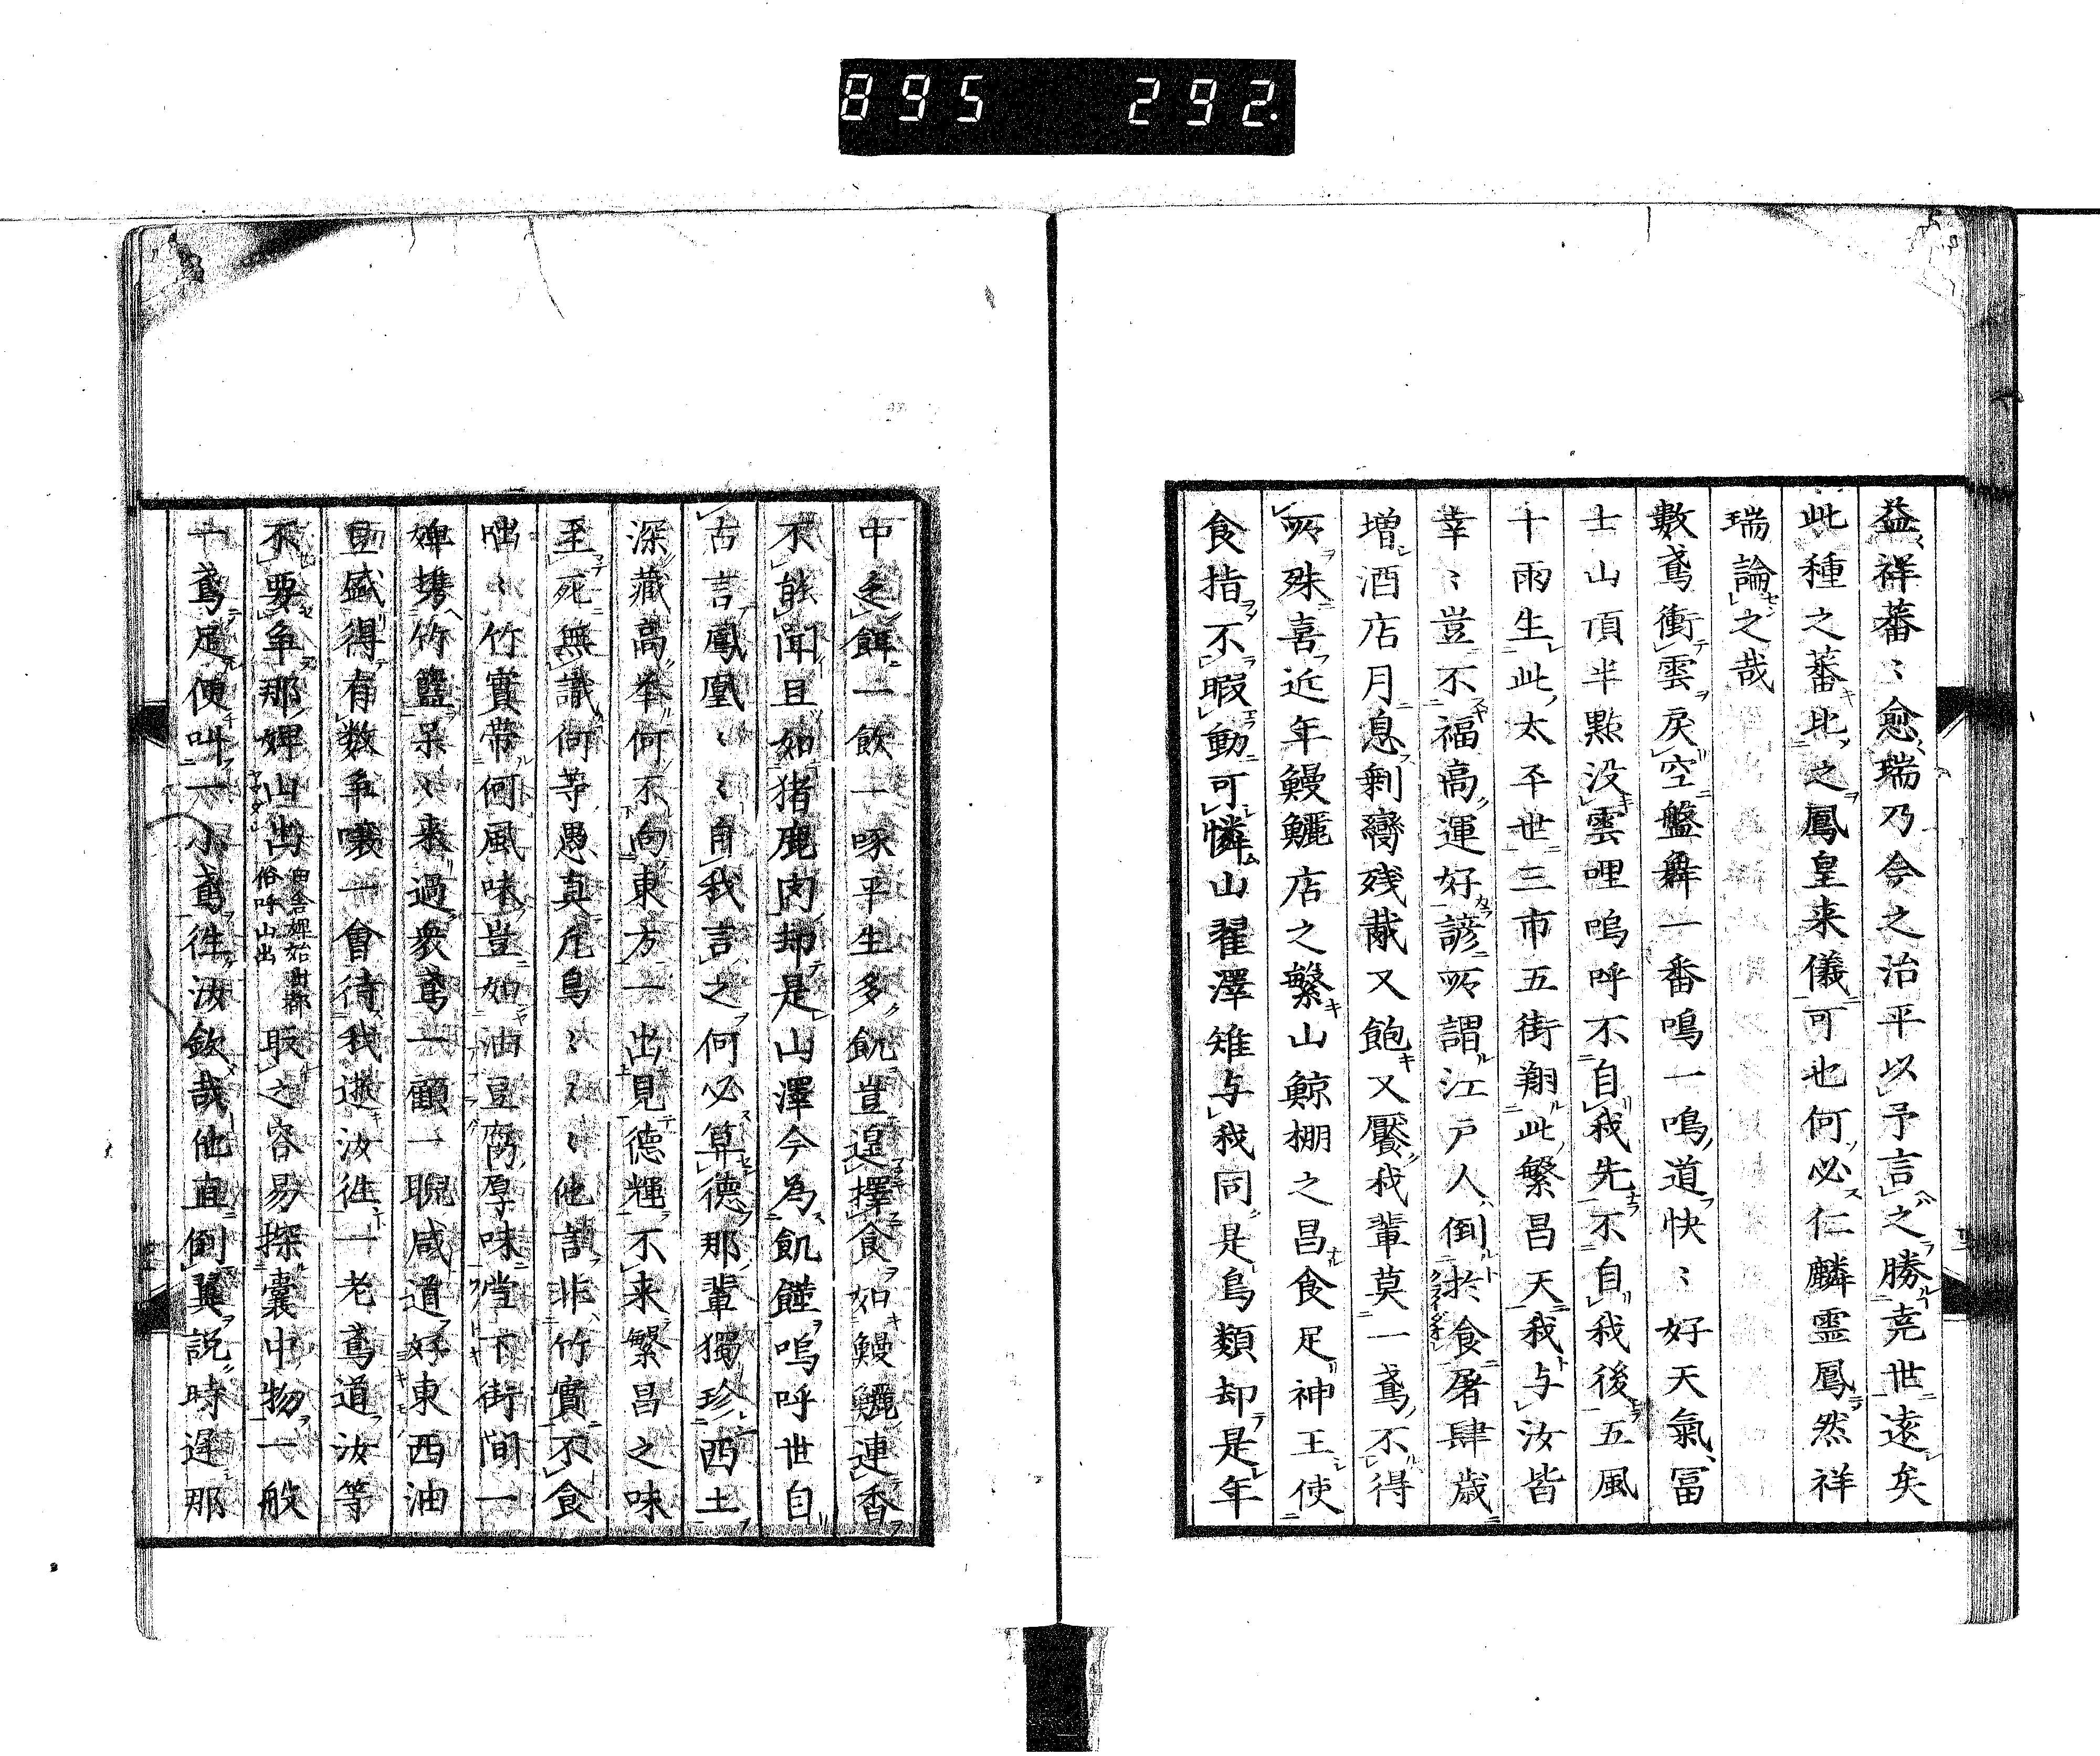 895 292.
益祥蕃〻愈瑞乃今之治平以予言之勝堯世遠矣
此種之蕃比之鳳皇来儀可也何必仁麟霊鳳然祥
瑞論之哉
數鳶衝雲戾空盤舞一番鳴一鳴道快〻好天氣冨
士山頂半點没雲哩嗚呼不自我先不自我後五風
十雨生此太平世三市五街翔此繁昌天我与汝皆
幸〻豈不福高運好諺所謂江戸人倒於食屠肆歳
増酒店月息剰臠残胾又飽又饜我輩莫一鳶不得
所殊喜近年鰻鱺店之繁山鯨棚之昌食足神王使
食指不暇動可憐山翟澤雉与我同是鳥類却是年
中乏餌一飲一啄平生多飢豈遑擇食如鰻鱺連香
不能聞且如猪鹿肉却是山澤今為飢饉嗚呼世自
古言鳳凰〻〻自我言之何必算德那輩獨珍西土
深藏高拳何不向東方一出見德輝不来繁昌之味
至死無識何等愚真凡鳥〻〻〻他言非竹實不食
咄〻竹實帯何風味豈如油豆腐厚味堂下街間一
婢擕竹籃呆〻来過衆鳶一顧一睨咸道好東西油
豆盛得有数爭嚷一會待我逝汝徃一老鳶道汝等
不要爭那婢山出田舎婢始出都俗呼山出取之容易探囊中物一般
一鳶足便叫一小鳶徃汝欽哉他直倒翼説時遅那